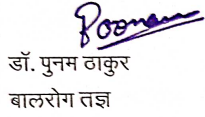 Poonam
डॉ. पुनम ठाकुर
बालरोग तज्ञ